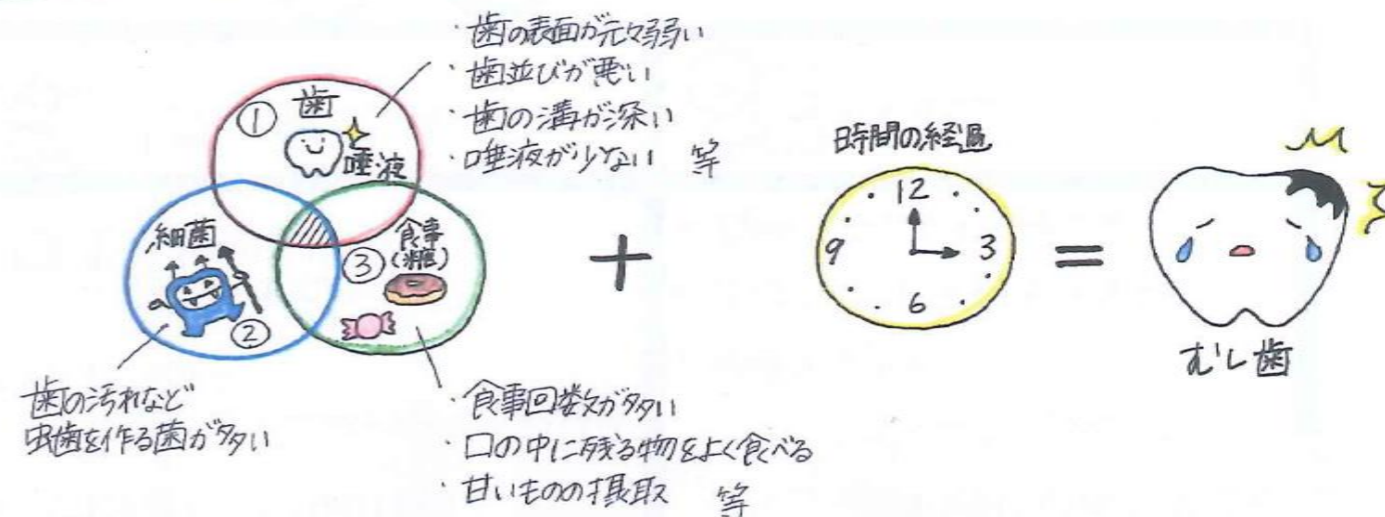 ・歯の表面が元々弱い
・歯並びが悪い
・歯の溝が深い
・唾液が少ない 等
① 歯
唾液
細菌
②
③ 食事
(糖)
歯の汚れなど
虫歯を作る菌が多い
・食事回数が多い
・口の中に残る物をよく食べる
・甘いものの摂取 等
+
時間の経過
12
3
6
9
=
むし歯